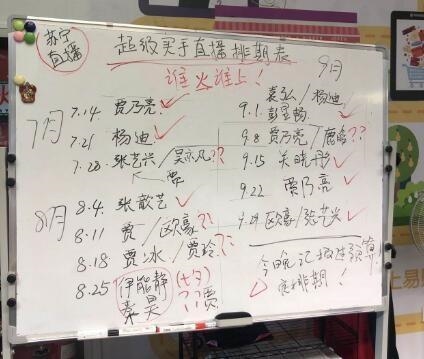 苏宁
直播
超级买手直播排期表
谁火谁上！
7月
7.14 贾乃亮
7.21 杨迪
7.28 张艺兴/吴亦凡??
8月
8.4 张歆艺
8.11 贾/欧豪??
8.18 贾冰/贾玲??
8.25 伊能静 (七夕)
秦昊 ??贾
9月
袁弘/杨迪
9.1 彭昱畅
9.8 贾乃亮/鹿晗??
9.15 关晓彤
9.22 贾乃亮
9.29 欧豪/张艺兴
今晚记
排期！
上易